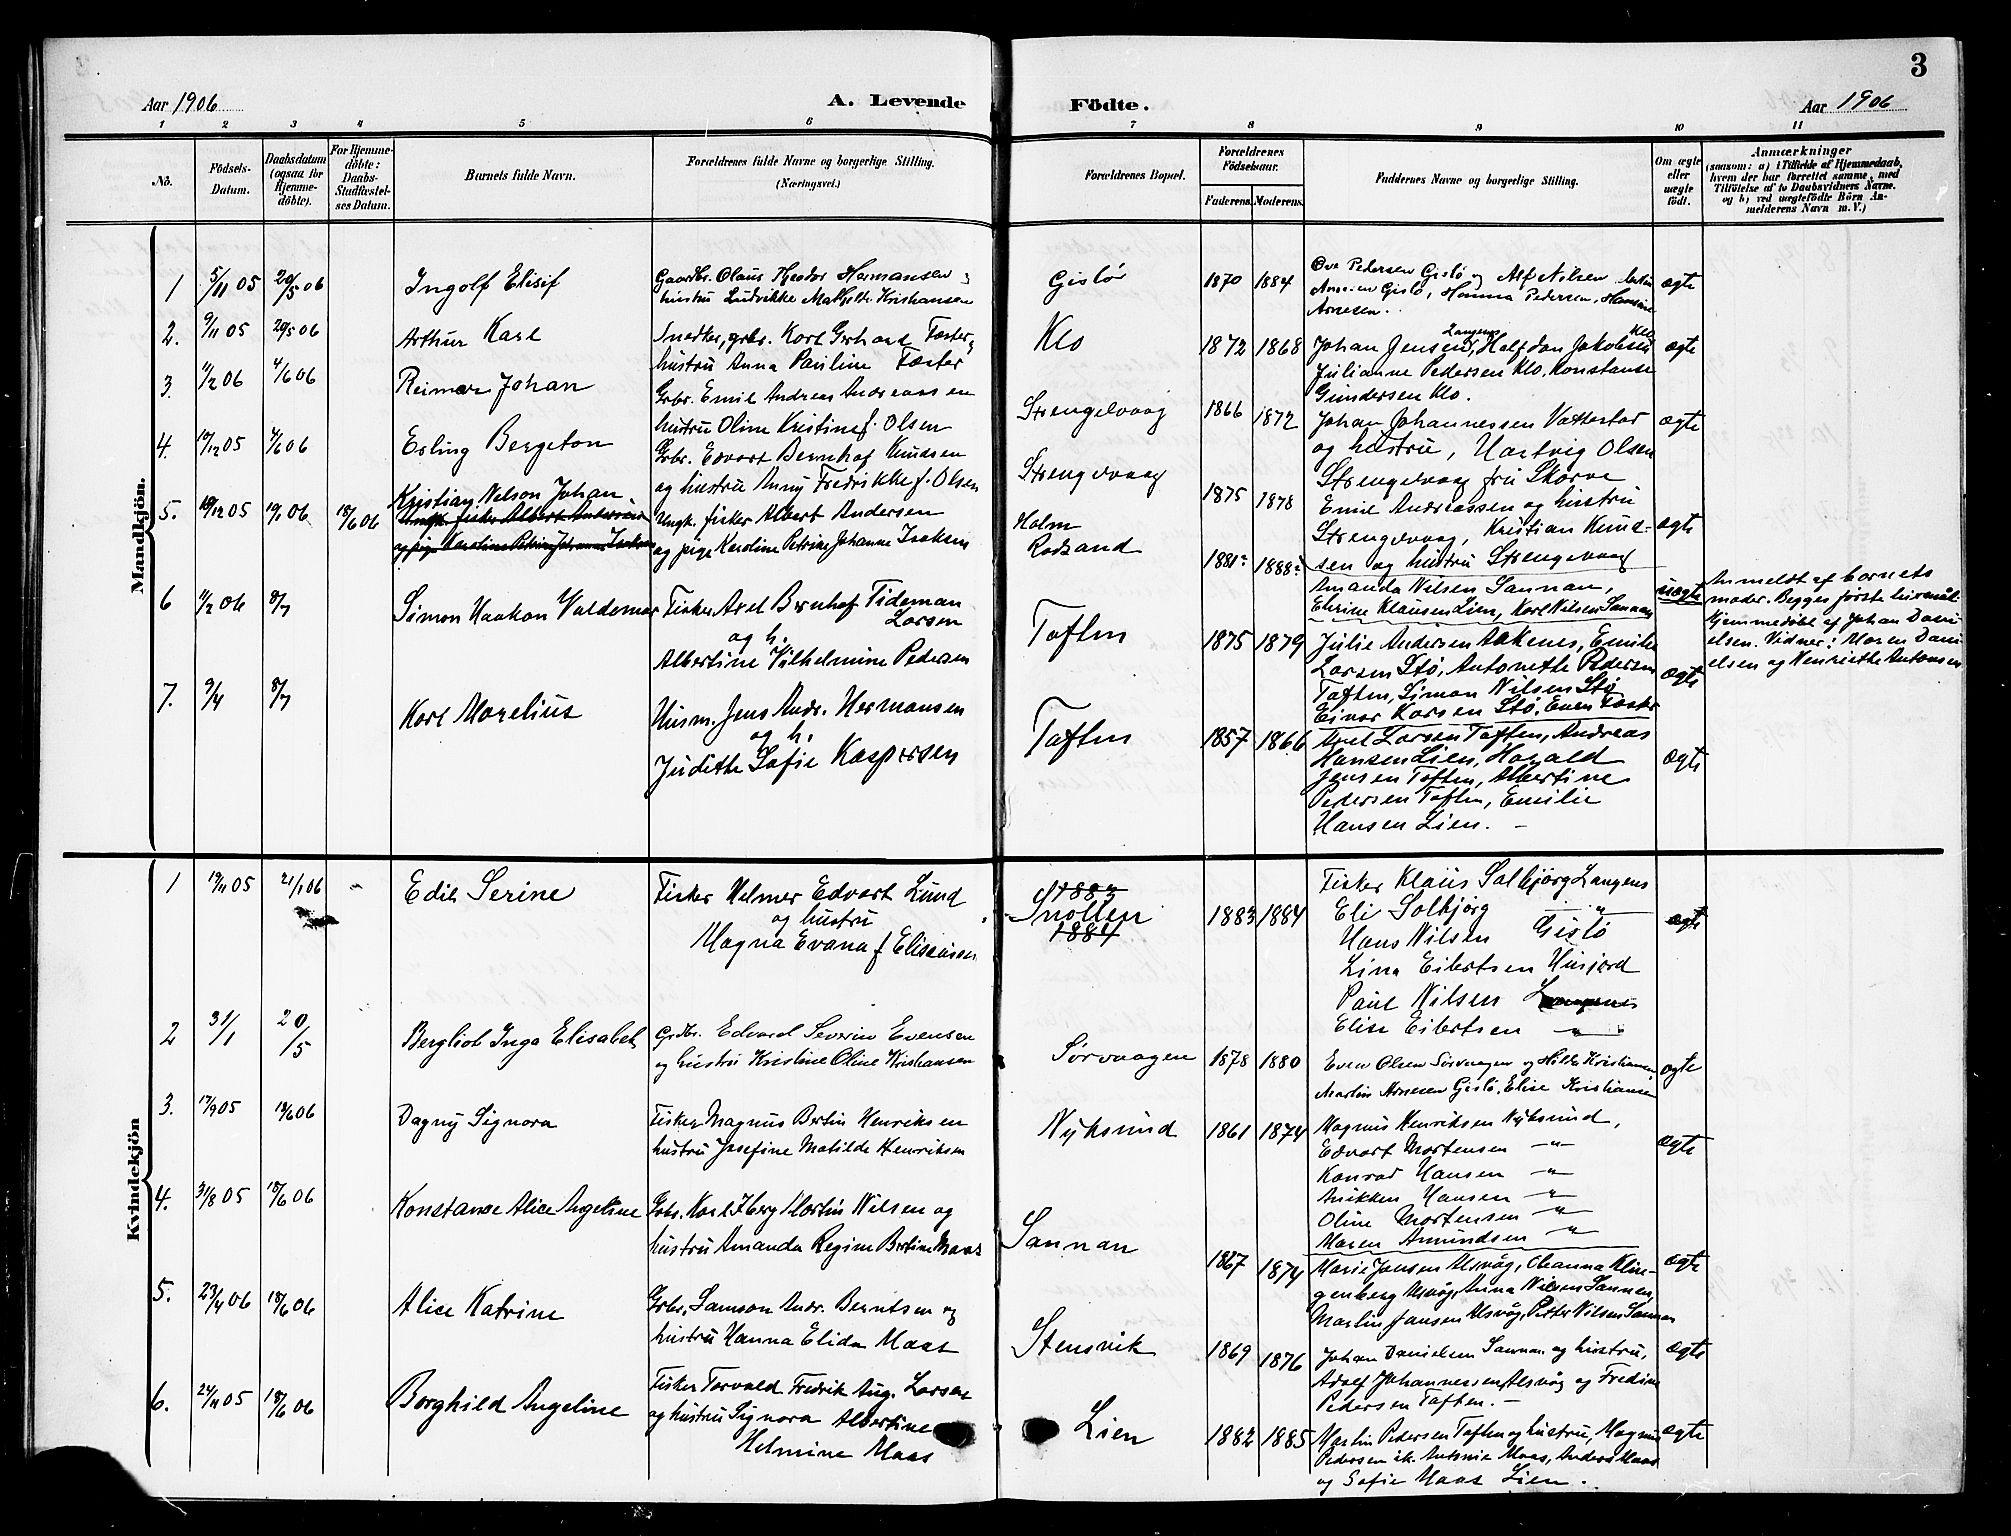 3
Aar 1906
A. Levende Födte.
Aar 1906
1 2 3 4 5 6 7 8 9 10 11
No.
Födsels-Datum.
Daabsdatum (ogsaa for Hjemmedöbte).
For Hjemmedöbte: Daabs-Stadfæstelses Datum.
Barnets fulde Navn.
Forældrenes fulde Navne og borgerlige Stilling.
(Næringsvei.)
Forældrenes Bopæl.
Forældrenes Födselsaar.
Faderens. Moderens.
Faddernes Navne og borgerlige Stilling.
Om ægte eller uægte födt.
Anmærkninger
(saasom: a) i Tilfælde af Hjemmedaab, hvem der har forrettet samme, med Tilföielse af to Daabsvidners Navne. og b) ved uægtefödte Börn Anmelderens Navn m. V.)
Mandkjön.
1 5/11 05 20/5 06 Ingolf Elisif
Gaardbr. Olaus Theodor Hermansen
hustru Ludvikke Mathilde Kristiansen
Gislør 1870 1884
Ove Pedersen Gislö og Alf Nilsen
Gislö, Homma Pedersen, Hansine
Arnesen.
ægte
2. 9/11 05 20/5 06 Arthur Karl
Snedker, grbr. Karl Gerhard Toster
hustru Anna Pauline Toster
Klo 1872 1868
Johan Jensen Langenes, Halfdan Jakobsen Klo
Julianne Pedersen Klo, Konstanse
Gundersen Klo.
ægte
3. 11/2 06 4/6 06 Reimar Johan
Grbr. Emil Andreas Andreassen
hustru Oline Kristine f. Olsen
Strengelvaag 1866 1872
Johan Johannessen Vottestad
og hustru, Hartvig Olsen
Strengelvaag fru Skorve
ægte
4. 10/12 05 4/6 06 Erling Bergeton
Grbr. Edvart Bernhof Knudsen
og hustru Anny Fredrikke f. Olsen
Strengelvaag 1875 1878
Emil Andreassen og hustru
Strengelvaag, Kristian Knud-
sen og hustru Strengelvaag
ægte
5. 10/12 05 19/1 06 18/6 06 Kristian Nelson Johan
Ungk. fisker Albert Andersen
og pige Karoline Petrine Johanne Isaksen
Ungk. fisker Albert Andersen
og pige Karoline Petrine Johanne Isaksen
Holm
Rødsand
1881 1888
Amanda Nilsen Sannan,
Elvine Klausen Lien, Karl Nilsen Sannan
uægte
Anmeldt af barnets
moder. Begges første leiermål.
Hjemmedøbt af Johan Dani-
elsen. Vidner: Maren Dani-
elsen og Henriette Antonsen
6 11/2 06 8/7 Simon Haakon Valdemar
Fisker Axel Bernhof Tideman
Larsen
og h.
Albertine Vilhelmine Pedersen
Toften 1875 1879
Julie Andersen Aakenes, Emilie
Larsen Stø, Antonette Pedersen
Toften, Simon Nilsen Stø
Einar Karsen Stø, Even Toster
ægte
7. 9/4 8/7 Karl Marelius
Husm. Jens Andr. Hermansen
og h.
Juditte Sofie Kaspersen
Toften 1857 1866
Axel Larsen Toften, Andreas
Hansen Lien, Harald
Jensen Toften, Albertine
Pedersen Toften, Emilie
Hansen Lien. –
ægte
Kvindekjön
1 19/11 05 21/1 06 Edil Serine
Fisker Helmer Edvart Lund
og hustru
Magna Evana f Eliseussen
1883
Smollen
1884
1883 1884
Fisker Klaus Solbjørg Langenes
Eli Solbjørg –"–
Hans Nilsen Gislö
Lina Eilertsen Husjord
Paul Nilsen Langenes
Elise Eilertsen –"–
ægte
2 31/1 20/5 Bergliot Inga Elisabet
Grdbr. Edvard Severin Evensen
og hustru Kristine Oline Kristiansen
Sørvaagen 1878 1880
Even Olsen Sørvaagen og Hilda Kristiansen
Martin Arnesen Gislö, Elise Kristiansen
ægte
3. 17/9 05 10/6 06 Dagny Signora
Fisker Magnus Bertin Henriksen
hustru Josefine Matilde Henriksen
Nyksund 1861 1874
Magnus Henriksen Nyksund,
Edvart Mortensen –"–
Konrad Hansen –"–
Anikken Hansen –"–
Oline Mortensen –"–
Maren Amundsen –"–
ægte
4. 31/8 05 18/6 06 Konstanse Alice Angeline
Grbr. Karl Iberg Martin Nilsen og
hustru Amanda Regine Bertine Maas
Sannan 1867 1874
Marie Jansen Alsvåg, Oleanna Klin-
genberg Alsvåg, Anna Nilsen Sannan,
Martin Jansen Alsvåg, Petter Nilsen Sannan
ægte
5. 23/4 06 18/6 06 Alice Katrine
Grbr. Samson Andr. Berntsen og
hustru Hanna Elida Maas
Stensvik 1869 1876
Johan Danielsen Sannan og hustru,
Adolf Johannessen Alsvåg og Fredine
Pedersen Toften. –
ægte
6. 22/11 05 18/6 06 Borghild Angeline
Fisker Torvald Fredrik Aug. Larsen
og hustru Signora Albertine
Helmine Maas
Lien 1882 1885
Martin Pedersen Toften og hustru, Magnus
Pedersen ik. Antonie Maas, Anders Maas
og Sofie Maas Lien.
ægte